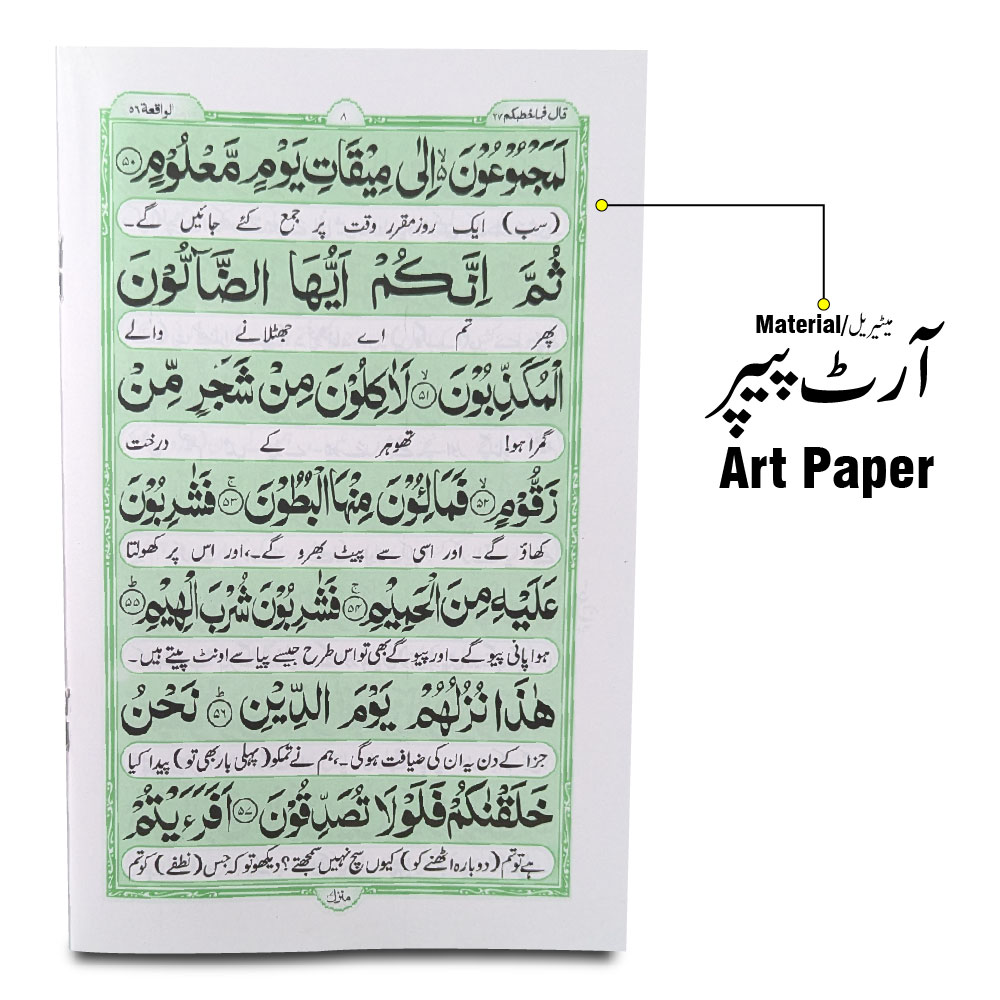 قال فماخطبکم ۲۷
۸
الواقعة ۵۶
لَمَجْمُوْعُوْنَ ۙ اِلٰى مِيْقَاتِ يَوْمٍ مَّعْلُوْمٍ ۝۵۰
(سب) ایک روز مقرر وقت پر جمع کئے جائیں گے۔
ثُمَّ اِنَّكُمْ اَيُّهَا الضَّآلُّوْنَ
پھر تم اے جھٹلانے والے
الْمُكَذِّبُوْنَ ۙ۝۵۱ لَاٰكِلُوْنَ مِنْ شَجَرٍ مِّنْ
گمراہو! تھوہر کے درخت
زَقُّوْمٍ ۙ۝۵۲ فَمَالِئُوْنَ مِنْهَا الْبُطُوْنَ ۚ۝۵۳ فَشٰرِبُوْنَ
کھاؤ گے۔ اور اسی سے پیٹ بھرو گے۔،اور اس پر کھولتا
عَلَيْهِ مِنَ الْحَمِيْمِ ۚ۝۵۴ فَشٰرِبُوْنَ شُرْبَ الْهِيْمِ ۭ۝۵۵
ہوا پانی پیو گے۔ اور پیو گے بھی تو اس طرح جیسے پیاسے اونٹ پیتے ہیں۔
هٰذَا نُزُلُهُمْ يَوْمَ الدِّيْنِ ۭ۝۵۶ نَحْنُ
جزا کے دن یہ ان کی ضیافت ہوگی۔،ہم نے تمکو (پہلی بار بھی تو) پیدا کیا
خَلَقْنٰكُمْ فَلَوْلَا تُصَدِّقُوْنَ ۝۵۷ اَفَرَءَيْتُمْ
ہے تو تم (دوبارہ اٹھنے کو) کیوں سچ نہیں سمجھتے؟ دیکھو تو کہ جس (نطفے) کو تم
Material/میٹیریل
آرٹ پیپر
Art Paper